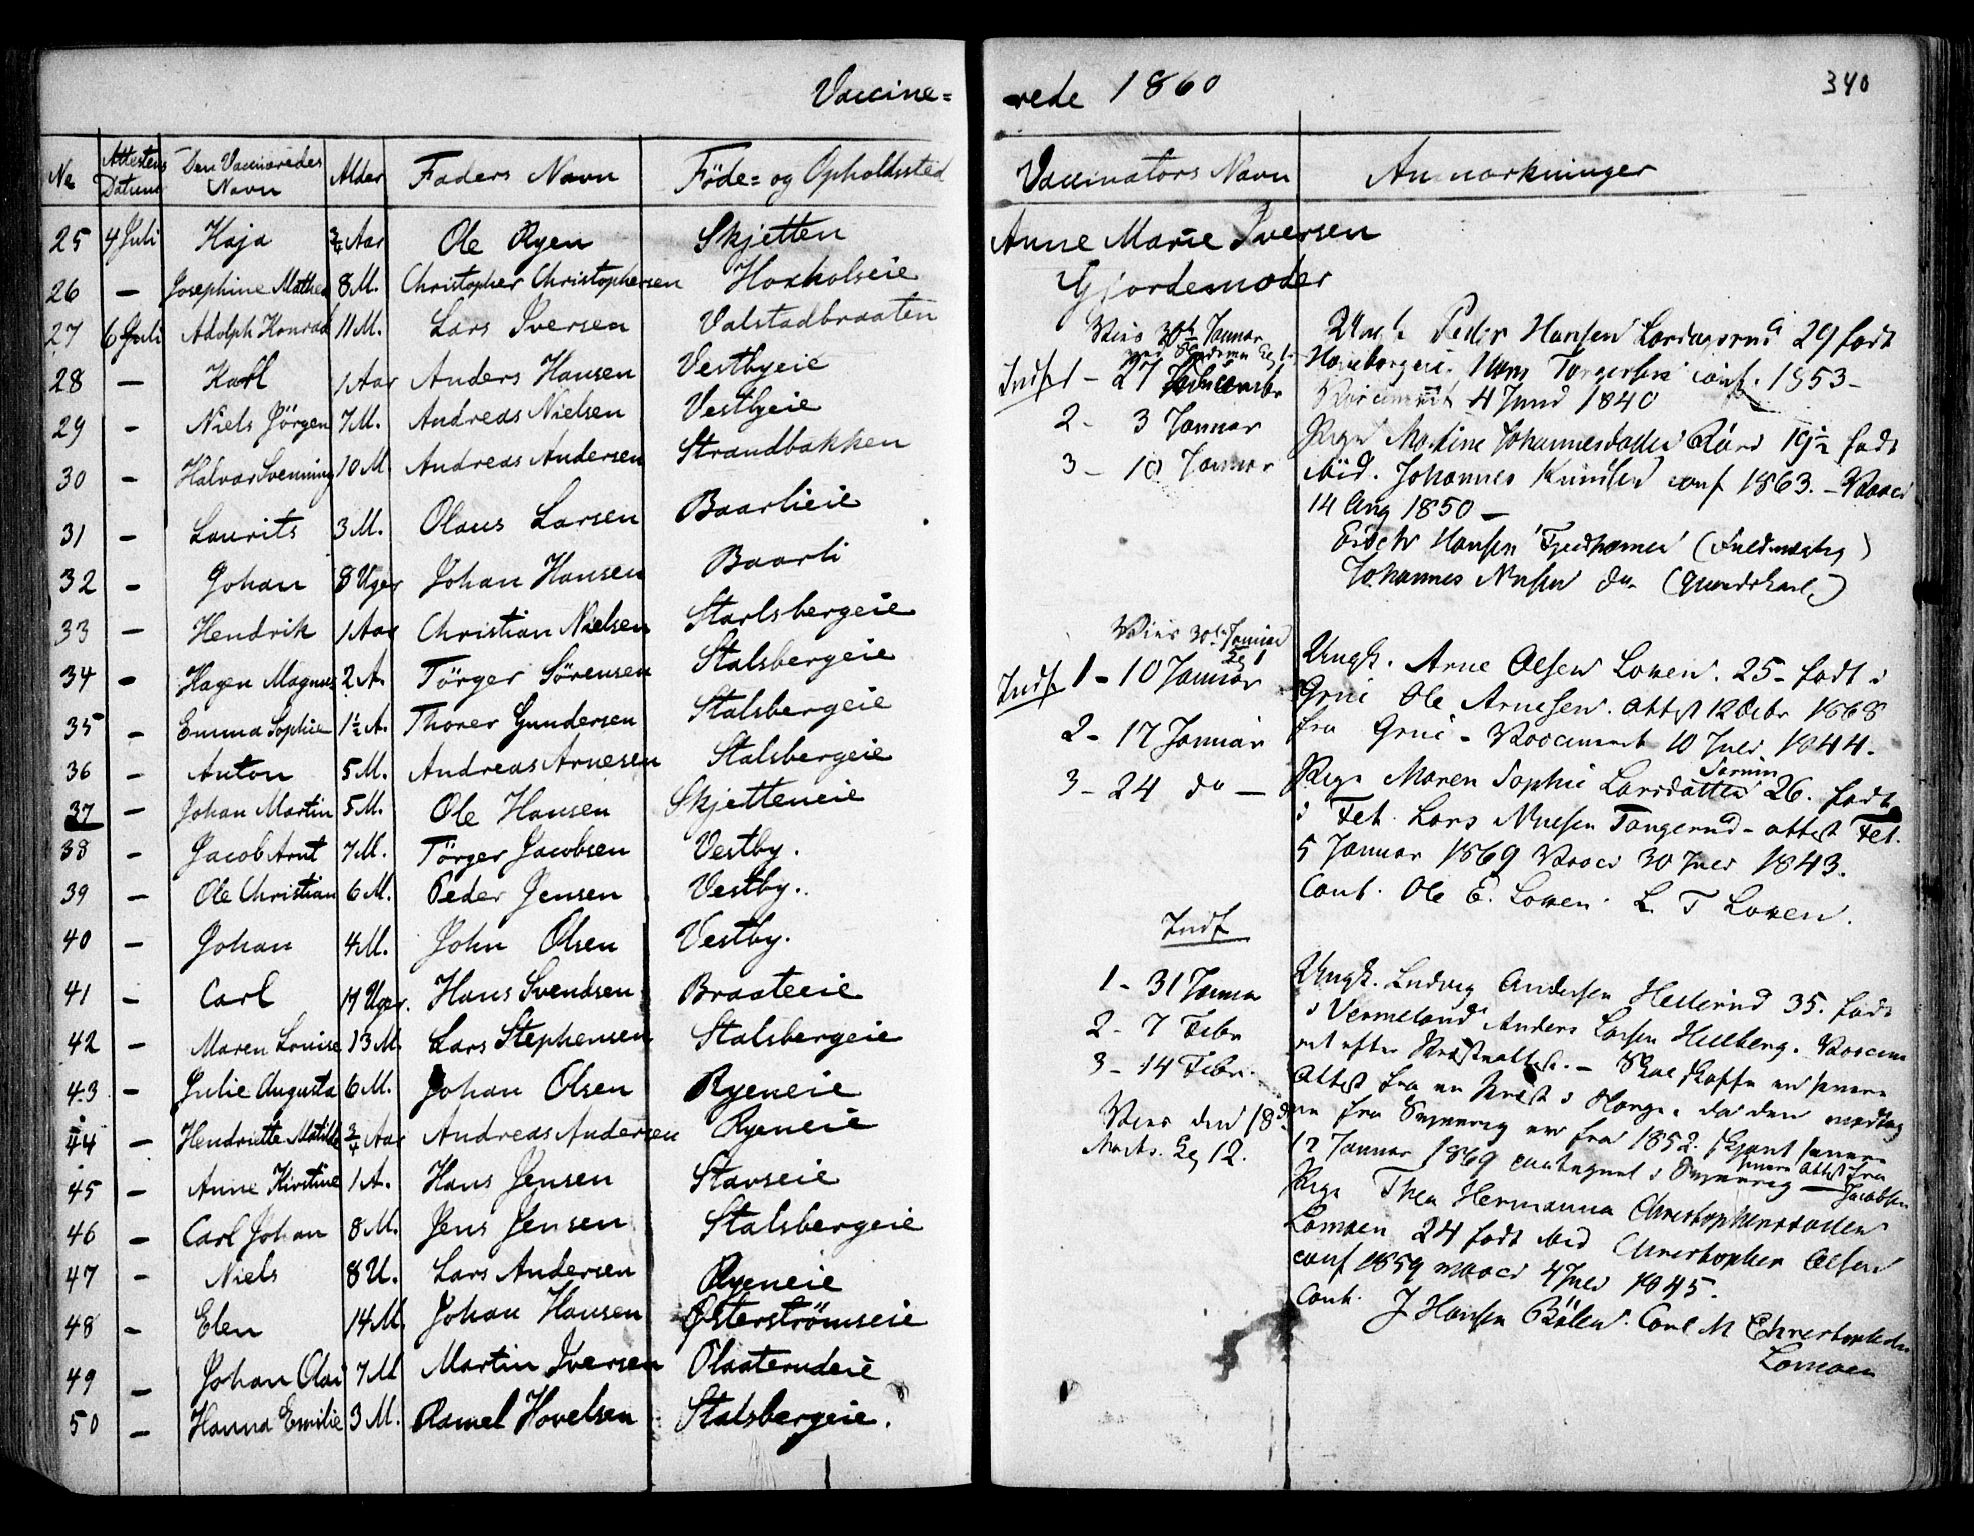 Vaccine=
No Attestens Datum Den Vaccineredes Navn Alder Faders Navn Føde= og Opholdssted
25 4 Juli Kaja 3/4 Aar Ole Ryen Skjetten
26 — Josephine Mathea 8 M. Christopher Christophersen Hoxholseie
27 6 Juli Adolph Konrad 11 M. Lars Iversen Valstadbraaten
28 — Karl 1 Aar Anders Hansen Vestbyeie
29 — Niels Jörgen 7 M. Andreas Nielsen Vestbyeie
30 — Halvor Svenning 10 M. Andreas Andersen Strandbakken
31 — Laurits 3 M. Olaus Larsen Baarlieie
32 — Johan 8 Uger Johan Hansen Baarli
33 — Hendrik 1 Aar Christian Nielsen Starlsbergeie
34 — Hagen Magnus 2 A. Törger Sörensen Stalsbergeie
35 — Emma Sophie 1½ A. Thorer Gundersen Stalsbergeie
36 — Anton 5 M. Andreas Arnesen Stalsbergeie
37 — Johan Martin 5 M. Ole Hansen Skjetteneie
38 — Jacob Arnt 7 M. Törger Jacobsen Vestby.
39 — Ole Christian 6 M. Peder Jensen Vestby.
40 — Johan 4 M. John Olsen Vestby.
41 — Carl 14 Uger. Hans Svendsen Braateeie
42 — Maren Louise 13 M. Lars Stephensen Stalsbergeie
43 — Julie Augusta 6 M. Johan Olsen Ryeneie
44 — Hendriette Matilde 3/4 Aar Andreas Andersen Ryeneie
45 — Anne Kirstine 1 A. Hans Jensen Stavseie
46 — Carl Johan 8 M. Jens Jensen Stalsbergeie
47 — Niels 8 U. Lars Andersen Ryeneie
48 — Elen 14 M. Johan Hansen Østerströmseie
49 — Johan Olai 7 M Martin Iversen Olaaterudeie
50 — Hanna Emilie 3 M. Ramel Hovelsen Stalsbergeie.
rede 1860
340
Vaccinators Navn Anmærkninger
Anne Marie Iversen
Gjordemoder
Viet 30te Januar
Indf 1 - 27
2 - 3 Januar
3 - 10 Januar
Peder Hansen 29 født
conf. 1853 -
4 Juni 1840
Pige Johannesdatter 19½ født
ibid. Johannes Knudsen conf 1863. - Vaacc
14 Aug 1850 —
Hansen
Johannes Nielsen do
Viet 30te Januar
Indf. 1 - 10 Januar
2 - 17 Januar
3 - 24 do —
Ungk. Arne Olsen Loxen. 25 - født i
Grue Ole Arnesen. attest 12 Debr 1868
fra Grue - Vaccineret 10 Juli 1844.
Pige Maren Sophie Larsdatter 26. født
i Fet. Lars Nielsen Tangerud - attest Fet.
5 Januar 1869 Vaacc 30 Juli 1843.
Cont. Ole E. Loxen. L T Loxen.
Indf
1 - 31 Januar
2 - 7 Febr
3 - 14 Febr.
Viet den 18de
Marts. 12.
Ungk. Ludvig Andersen Hellerud 35. født
i Vermeland Anders Larsen Hellberg.
fra 1852.
17 Januar 1869
Pige Thea Hermanna Christophersdatter
Lomoen 24 født ibid Christopher Olsen
conf 1859 vaacc 4 Juli 1845.
Cont. J Hansen Bölen. Carl M Christophersen
Lomoen